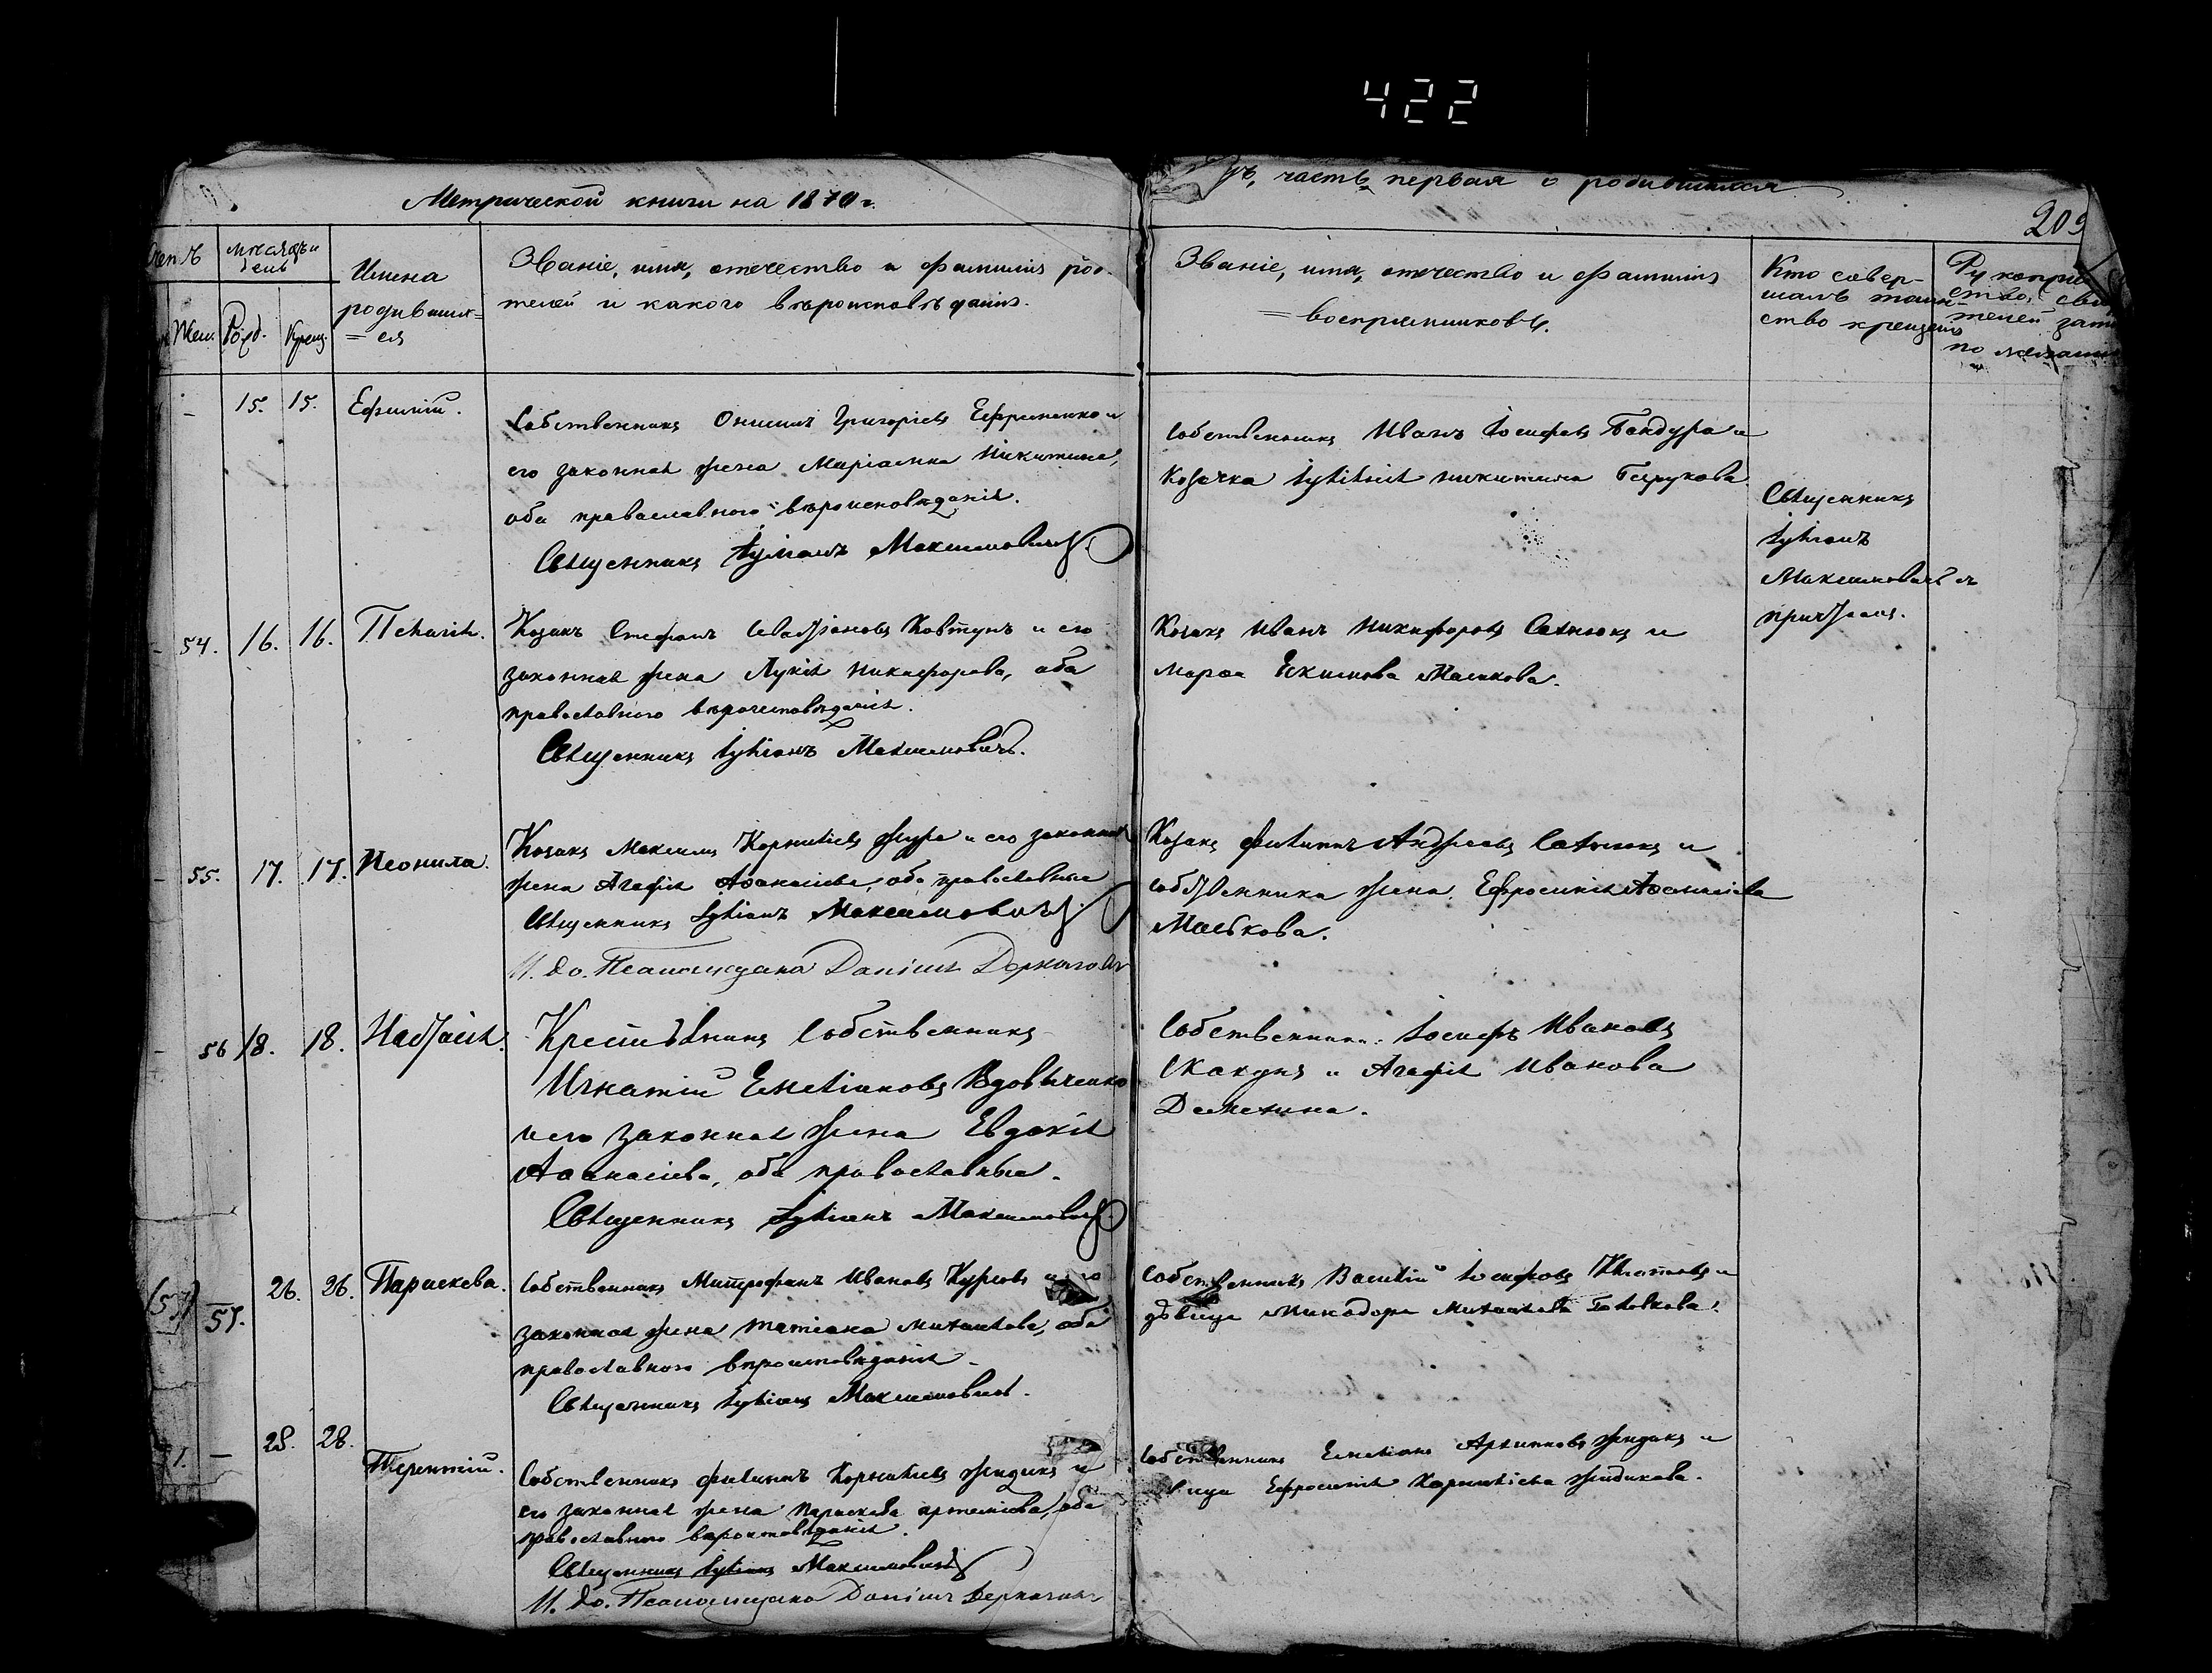 422
Метрической книги на 1870 г.
часть первая о родившихся
209
мѣсяцъ и
день
Жен.
Рожд.
Крещ.
Имена
родивших=
=ся
Званіе, имя, отечество и фамилія роди-
телей и какого вѣроисповѣданія.
Званіе, имя, отечество и фамилія
=воспріемниковъ.
Кто совер-
шалъ таин-
ство крещенія
по желанію
– 15. 15. Ефимій.
Собственникъ Онисимъ Григоріевъ Ефременко и
его законная жена Маріанна Никитина,
оба православного вѣроисповѣданія.
Священникъ Іуліанъ Максимовичъ
Собственникъ Иванъ Іосифовъ Бандура и
Козачка Іуліанія Никитина
Священникъ
Іуліанъ
Максимовичъ съ
причтомъ.
54. 16. 16. Пелагія.
Козакъ Стефанъ Ковтунъ и его
законная жена Лукія Никифорова, оба
православного вѣроисповѣданія.
Священникъ Іуліанъ Максимовичъ.
Козакъ Иванъ Никифоровъ и
Марфа Екимова
55. 17. 17. Неонила.
Козакъ Максимъ Корниліевъ Жура и его законная
жена Агафія Афанасіева, оба православные
Священникъ Іуліанъ Максимовичъ
И. до. Псаломщика Даніилъ
Козакъ Филиппъ Андреевъ и
собственника жена Ефросинія Афанасіева
Маслкова.
56 18. 18. Настасія.
Крестьянинъ Собственникъ
Игнатій Емеліановъ Вдовиченко
и его законная жена Евдокія
Афанасіева, оба православные.
Священникъ Іуліанъ Максимовичъ
Собственникъ Іосифъ Ивановъ
Скакунъ и Агафія Иванова
57. 26. 26. Параскева.
Собственникъ Митрофанъ Ивановъ и его
законная жена Татіана Михаилова, оба
православного вѣроисповѣданія.
Священникъ Іуліанъ Максимовичъ.
Собственникъ Василій Іосифовъ и
дѣвица Минодора Михаилова
– 28. 28.
Терентій.
Собственникъ Филиппъ Корниліевъ Жидикъ и
его законная жена Параскева Артеміева, оба
православного вѣроисповѣданія.
Священникъ Іуліанъ Максимовичъ
И. до. Псаломщика Даніилъ
Собственникъ Емеліанъ Архиповъ Жидикъ и
Ефросинія Корниліева Жидикова.